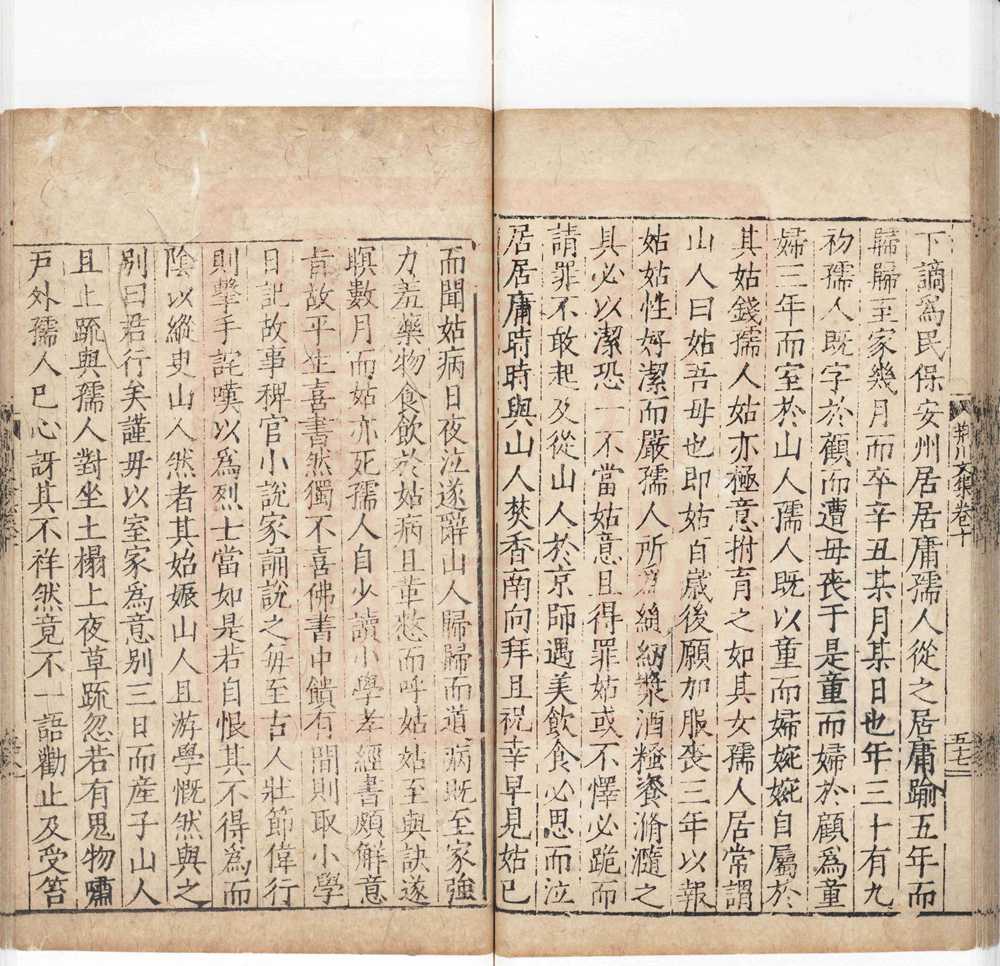 下謫爲民保安州居居庸孺人從之居庸踰五年而
歸歸至家幾月而卒辛丑某月某日也年三十有九
初孺人旣字於顧而遭毋喪于是童而婦於顧爲童
婦三年而室於山人孺人旣以童而婦婉婉自屬於
其姑錢孺人姑亦極意拊育之如其女孺人居常謂
山人曰姑吾毋也即姑百歲後願加服喪三年以報
姑姑性好潔而嚴孺人所爲縝紉漿酒糔餈滫瀡之
具必以潔恐一不當姑意且得罪姑或不懌必跪而
請罪不敢起及從山人於京師遇美飲食必思而泣
居居庸時時與山人焚香南向拜且祝幸早見姑已
荆川文集卷十
五七
而聞姑病日夜泣遂辭山人歸歸而道病旣至家強
力羞藥物食飲於姑病且革憊而呼姑姑至與訣遂
瞑數月而姑亦死孺人自少讀小學孝經書頗解意
旨故平生喜書然獨不喜佛書中饋有間則取小學
日記故事稗官小說家誦說之每至古人壯節偉行
則擊手詫嘆以爲烈士當如是若自恨其不得爲而
陰以縱史山人然者其始娠山人且游學慨然與之
别曰君行矣謹毋以室家爲意别三日而產子山人
且上疏與孺人對坐土榻上夜草疏忽若有鬼物嘯
戶外孺人已心訝其不祥然竟不一語勸止及受笞